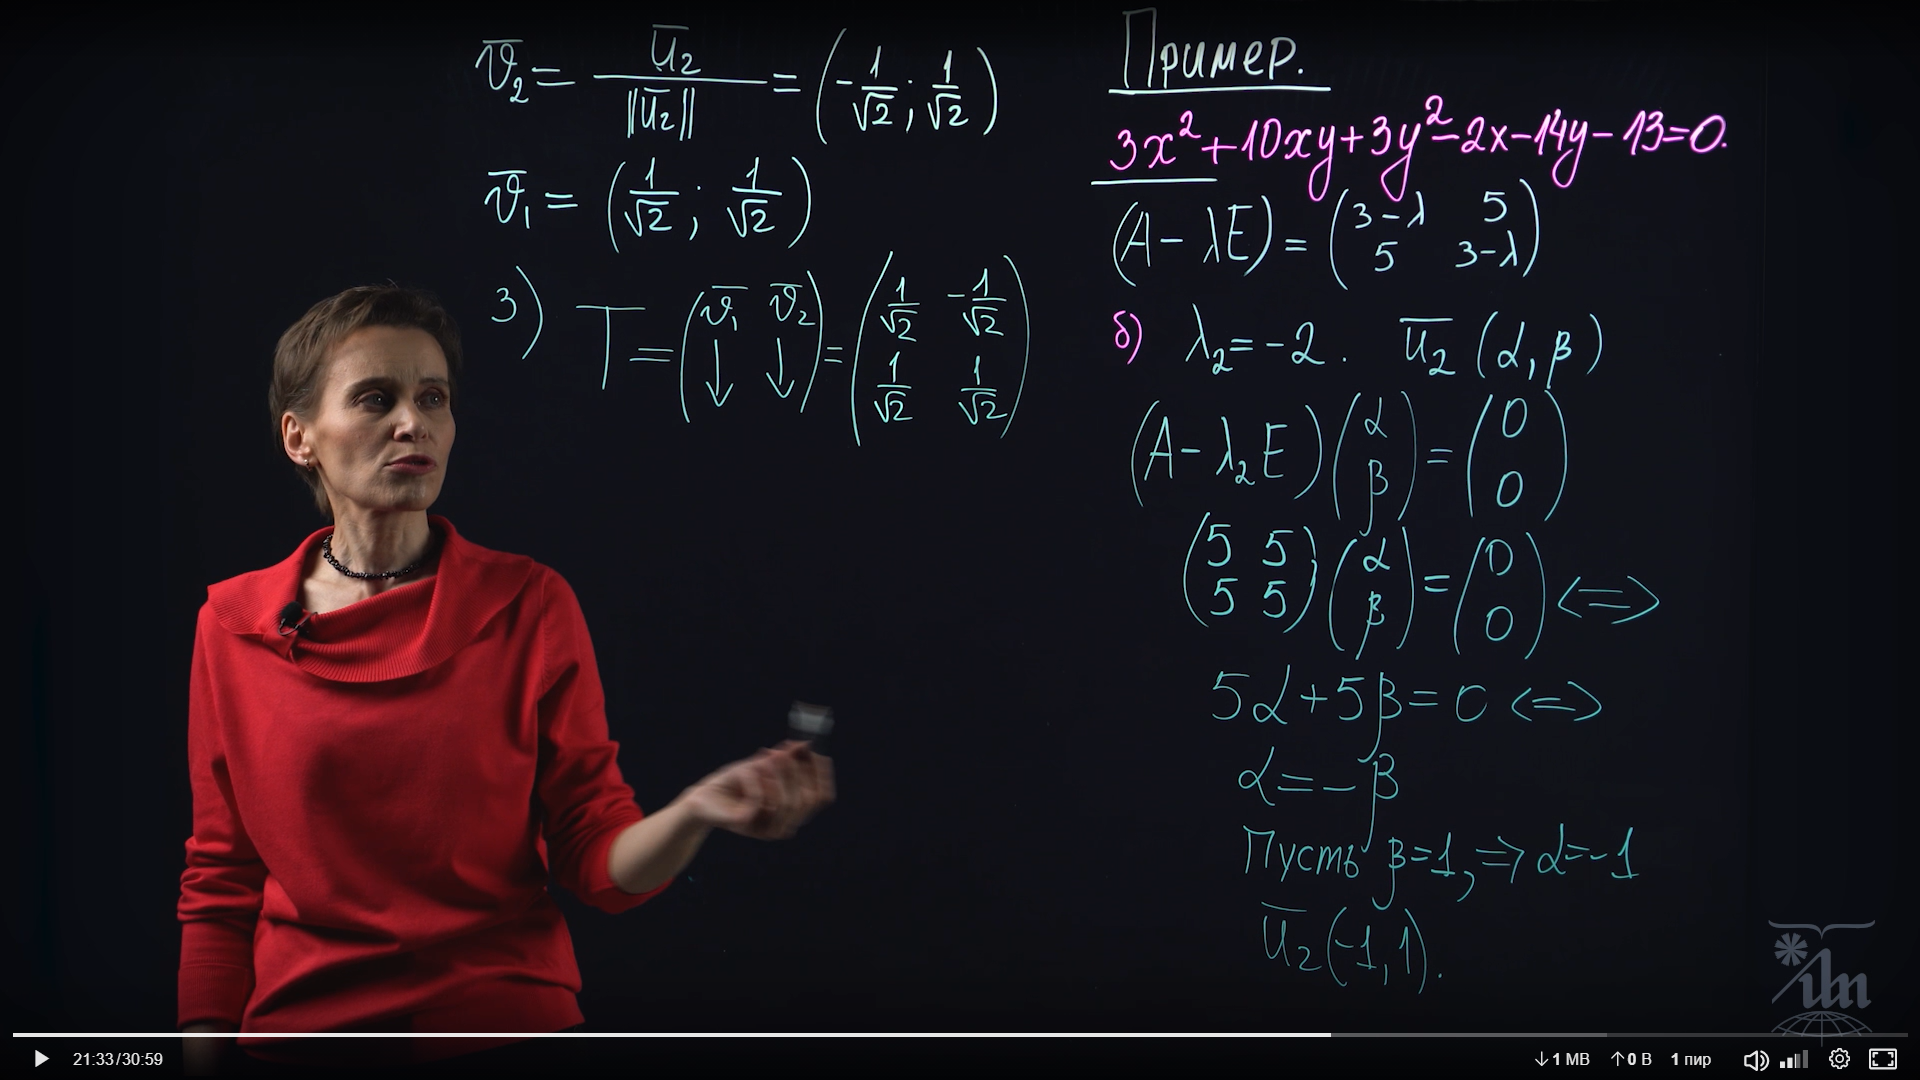 v̅₂ = u̅₂ / ||u̅₂|| = (-1/√2 ; 1/√2)
v̅₁ = (1/√2 ; 1/√2)
3) T = (v̅₁ v̅₂ ↓ ↓) = (1/√2 -1/√2 1/√2 1/√2)
Пример.
3x² + 10xy + 3y² - 2x - 14y - 13 = 0.
(A - λE) = (3-λ 5 5 3-λ)
б) λ₂ = -2 . u̅₂ (α, β)
(A - λ₂E) (α β) = (0 0)
(5 5 5 5) (α β) = (0 0) <=>
5α + 5β = 0 <=>
α = -β
Пусть β = 1, => α = -1
u̅₂ (-1, 1).
ium
21:33/30:59
↓ 1 MB ↑ 0 B 1 пир